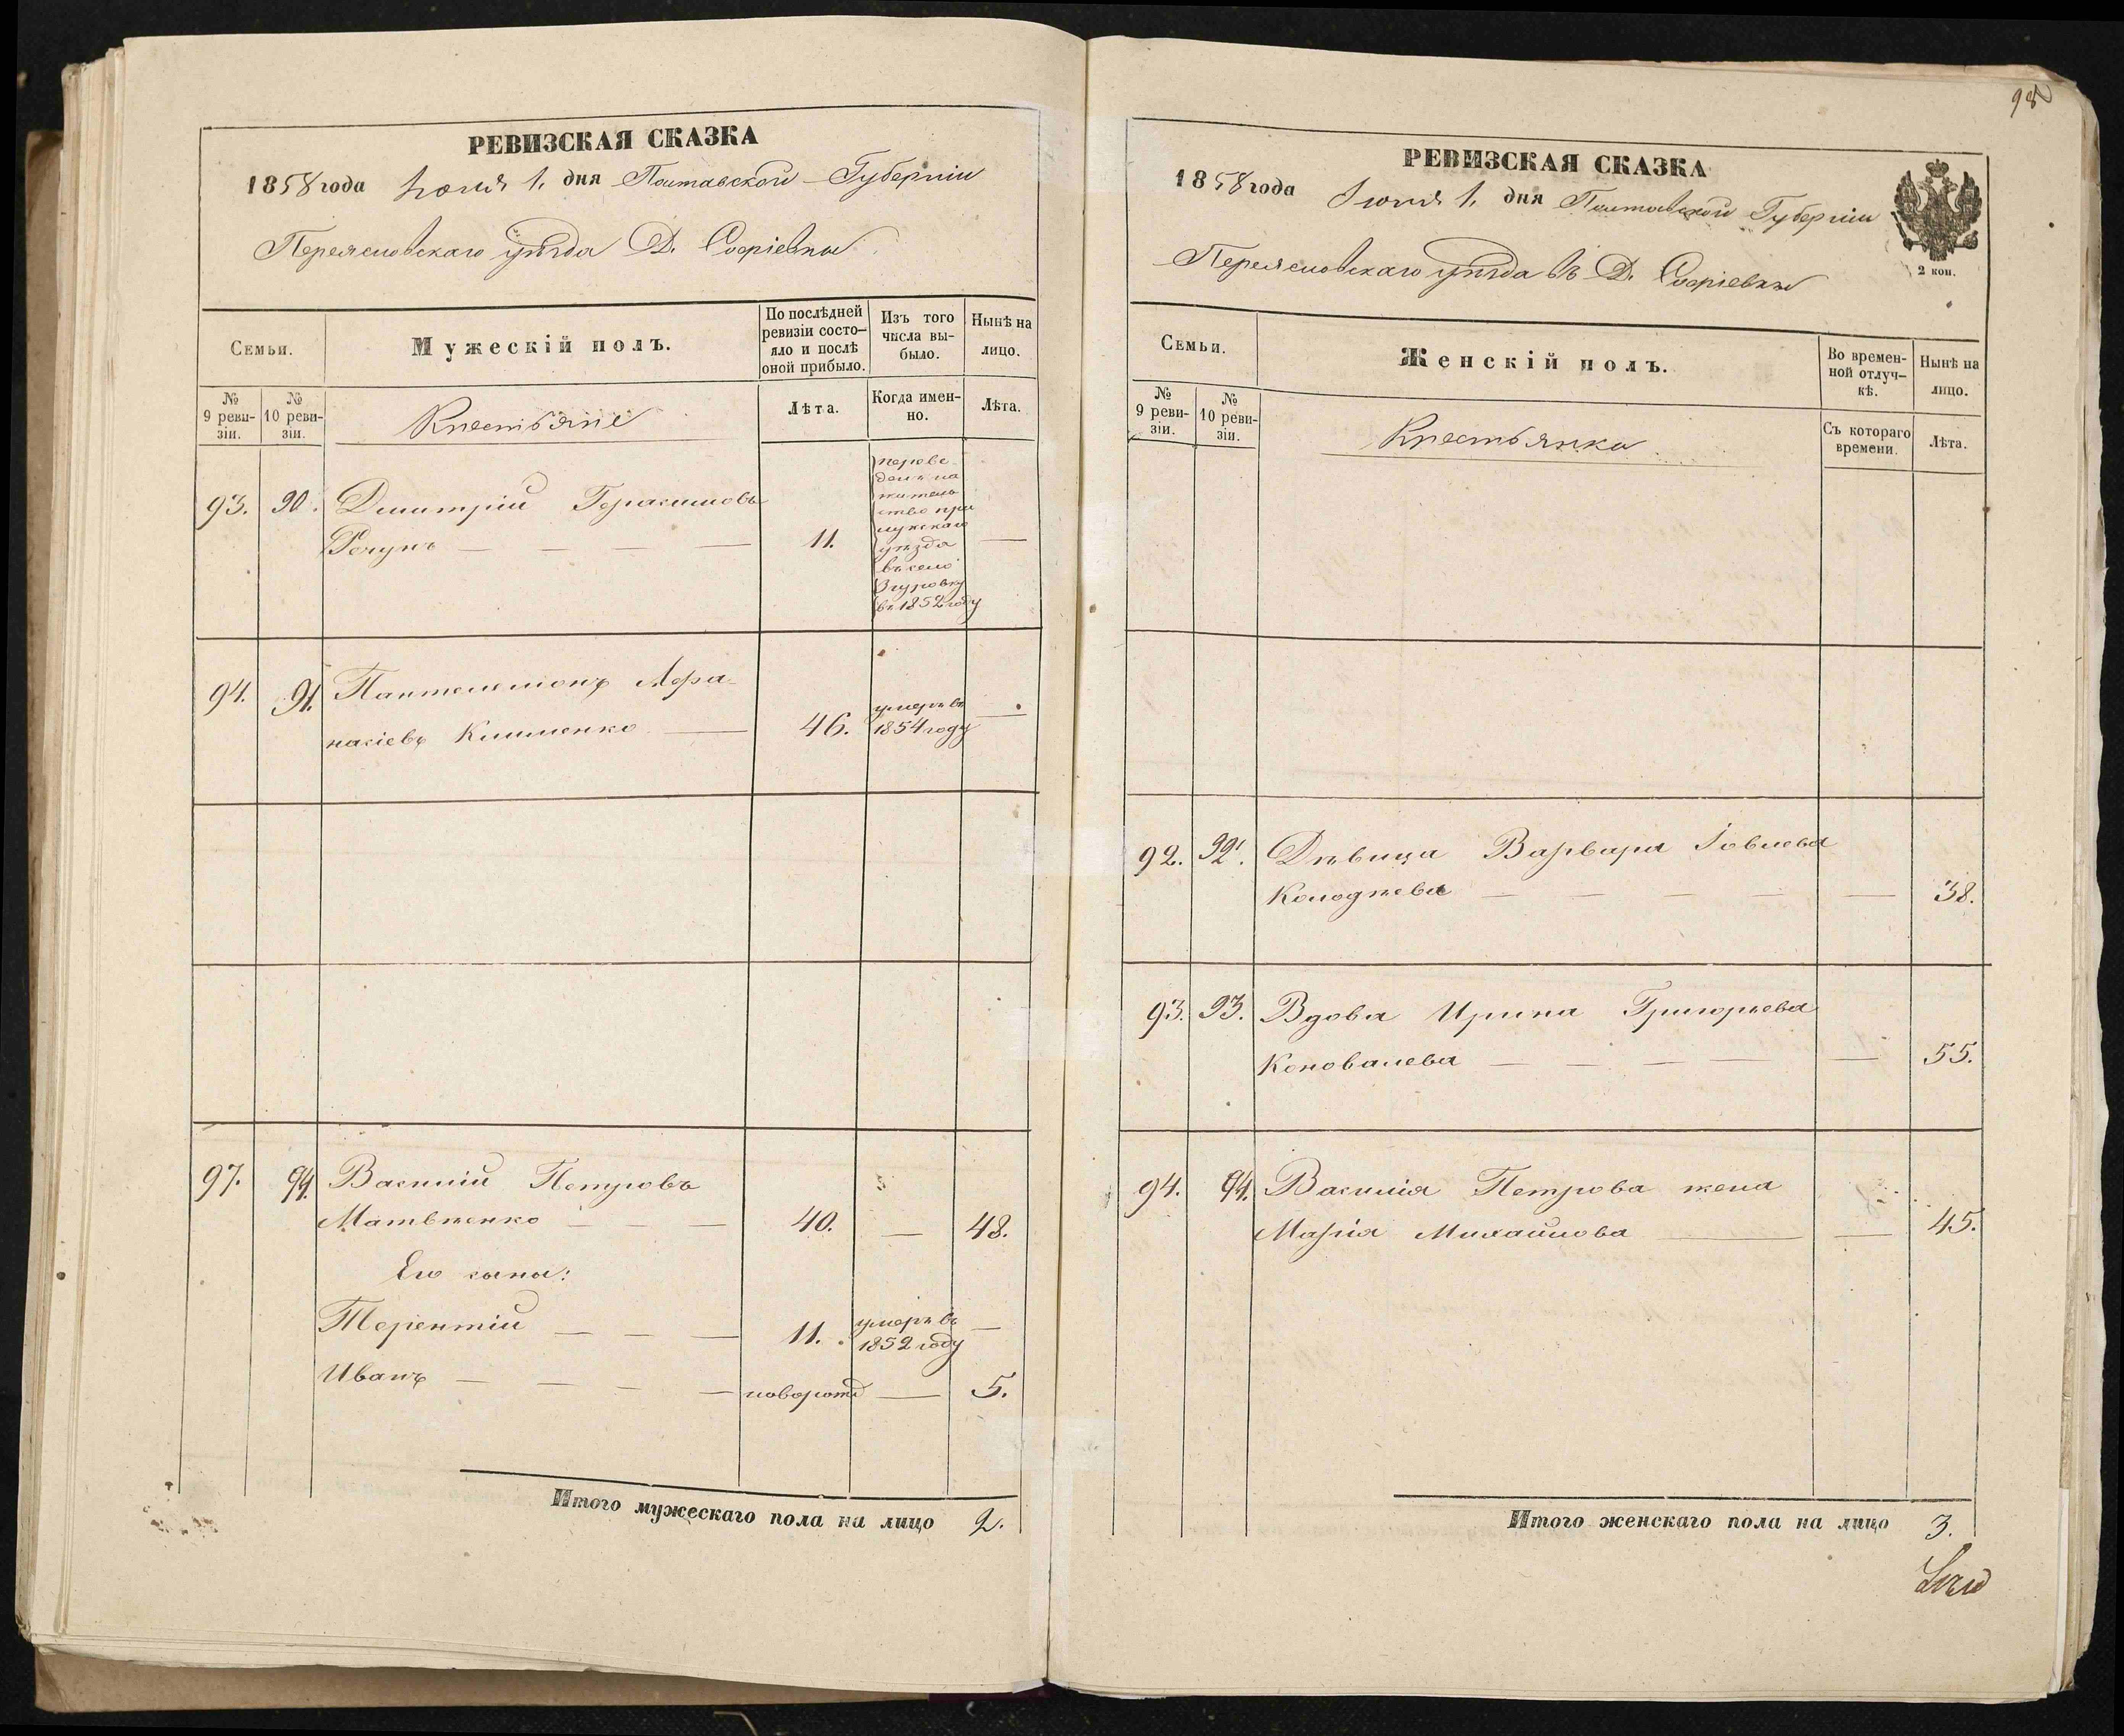 РЕВИЗСКАЯ СКАЗКА
1858 года Іюня 1. дня Полтавской Губерніи
Переяславскаго уѣзда Д. Софіевки
Семьи.
Мужескій полъ.
По послѣдней ревизіи состо-
яло и послѣ
оной прибыло.
Изъ того
числа вы-
было.
Нынѣ на
лицо.
№
9 реви-
зіи.
№
10 реви-
зіи.
Крестьяне
Лѣта.
Когда имен-
но.
Лѣта.
93. 90. Дмитрій Герасимовъ
11.
переве-
денъ на
жительство при
лукскаго
уѣзда
въ село
Згуровку
въ 1852 году
94. 91. Пантелемонъ Афа-
насіевъ Клименко 46.
умеръ въ
1854 году
97. 94. Василій Петровъ
Матвѣенко 40. 48.
Его сына:
Терентій 11. умеръ въ
1852 году
Иванъ новорожд 5.
Итого мужескаго пола на лицо 2.
98
РЕВИЗСКАЯ СКАЗКА
1858 года Іюня 1. дня Полтавской Губерніи
Переяславскаго уѣзда въ Д. Софіевки
2 коп.
Семьи.
Женскій полъ.
Во времен-
ной отлуч-
кѣ.
Нынѣ на
лицо.
№
9 реви-
зіи.
№
10 реви-
зіи.
Крестьянка
Съ котораго
времени.
Лѣта.
92. 92. Дѣвица Варвара Іовлева
Колодѣева 38.
93. 93. Вдова Ирина Григорьева
Коновалева 55.
94. 94. Василія Петрова жена
Марія Михайлова 45.
Итого женскаго пола на лицо 3.